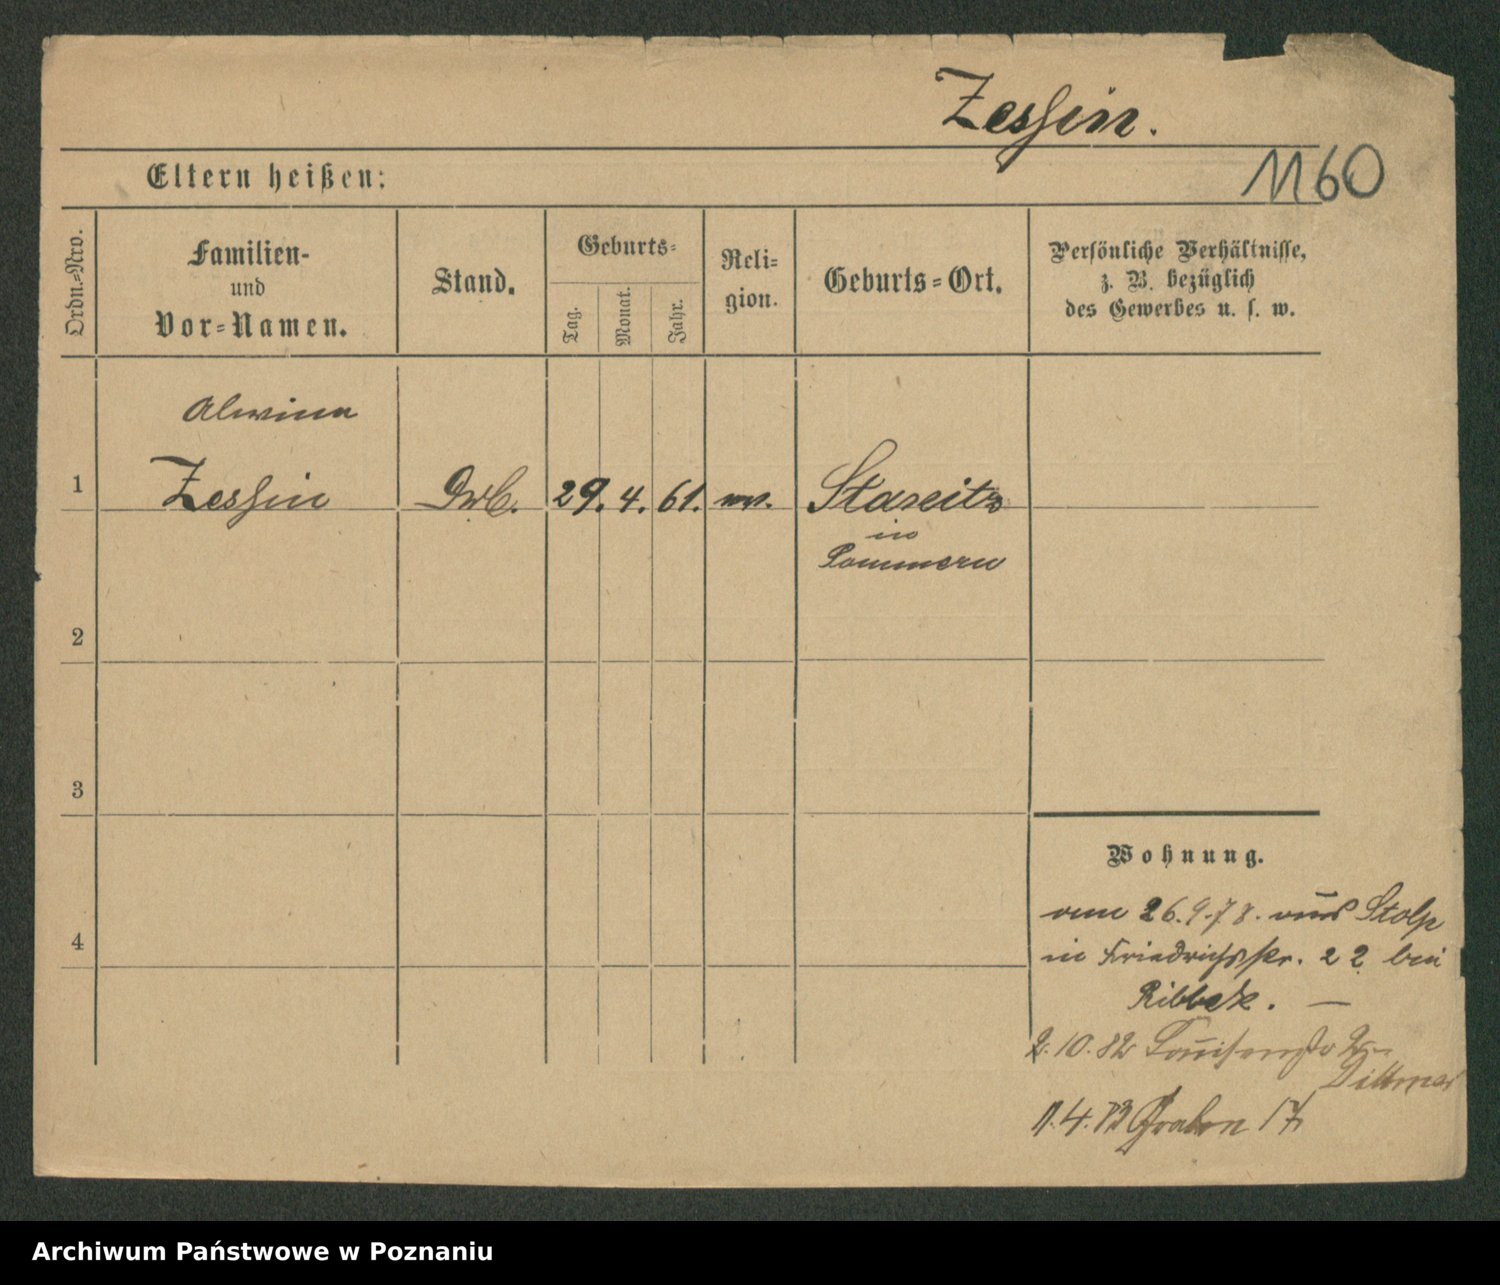 Zessin.
1160
Eltern heißen:
Ordn.-Nro.
Familien-
und
Vor-Namen.
Stand.
Geburts-
Tag.
Monat.
Jahr.
Reli-
gion.
Geburts-Ort.
Persönliche Verhältnisse,
z. B. bezüglich
des Gewerbes u. s. w.
Alwine
1 Zessin 29. 4. 61. ev.
in
Pommern
2
3
Wohnung.
4
26.9.78. aus Stolp
in Friedrichsstr. 22 bei
Ribbek. —
2.10.82 Louisenstr
Dittmar
1.4.83 Graben 17
Archiwum Państwowe w Poznaniu